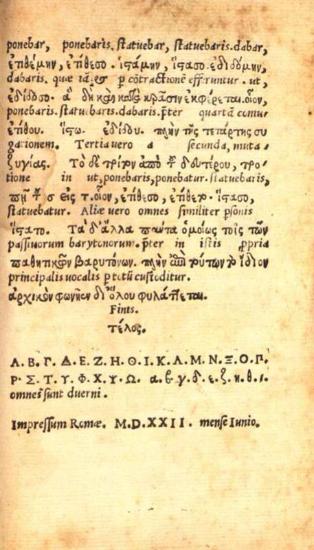 ponebar, ponebaris. statuebar, statuebaris. dabar,
ἐτιθέμην, ἐτίθεσο. ἱστάμην, ἵστασο. ἐδιδόμην,
dabaris. quæ tam&ş p cõtractionẽ efferuntur. ut,
ἐδίδοσο. ἃ δὴ καὶ κατὰ κρᾶσιν ἐκφέρεται. οἷον,
ponebaris. statuebaris. dabaris. p̃ter quartã coniu
ἐτίθου. ἵστω. ἐδίδου. πλὴν τῆς τετάρτης συ
gationem. Tertia vero a secunda, muta
ζυγίας. Τὸ δὲ τρίτον ἀπὸ τοῦ δευτέρου, τρο
tione in ut, ponebaris, ponebatur. statuebaris,
πῇ τοῦ σ εἰς τ. οἷον, ἐτίθεσο, ἐτίθετο. ἵστασο,
statuebatur. Aliæ vero omnes similiter p̃sonis
ἵστατο. Τὰ δ'ἄλλα πάντα ὁμοίως τοῖς τῶν
passiuorum barytonorum. p̃ter in istis ꝓpria
παθητικῶν βαρυτόνων. πλὴν ἐπὶ τούτων τὸ ἴδιον
principalis vocalis p totũ custoditur.
ἀρχικὸν φωνῆεν δι' ὅλου φυλάττεται.
Finis.
Τέλος.
Α. Β. Γ. Δ. Ε. Ζ. Η. Θ. Ι. Κ. Λ. Μ. Ν. Ξ. Ο. Π.
Ρ. Σ. Τ. Υ. Φ. Χ. Υ. Ω. α. β. γ. δ. ε. ζ. η. θ. ι.
omnes sunt duerni.
Impressum Romæ. M.D.XXII. mense Iunio.